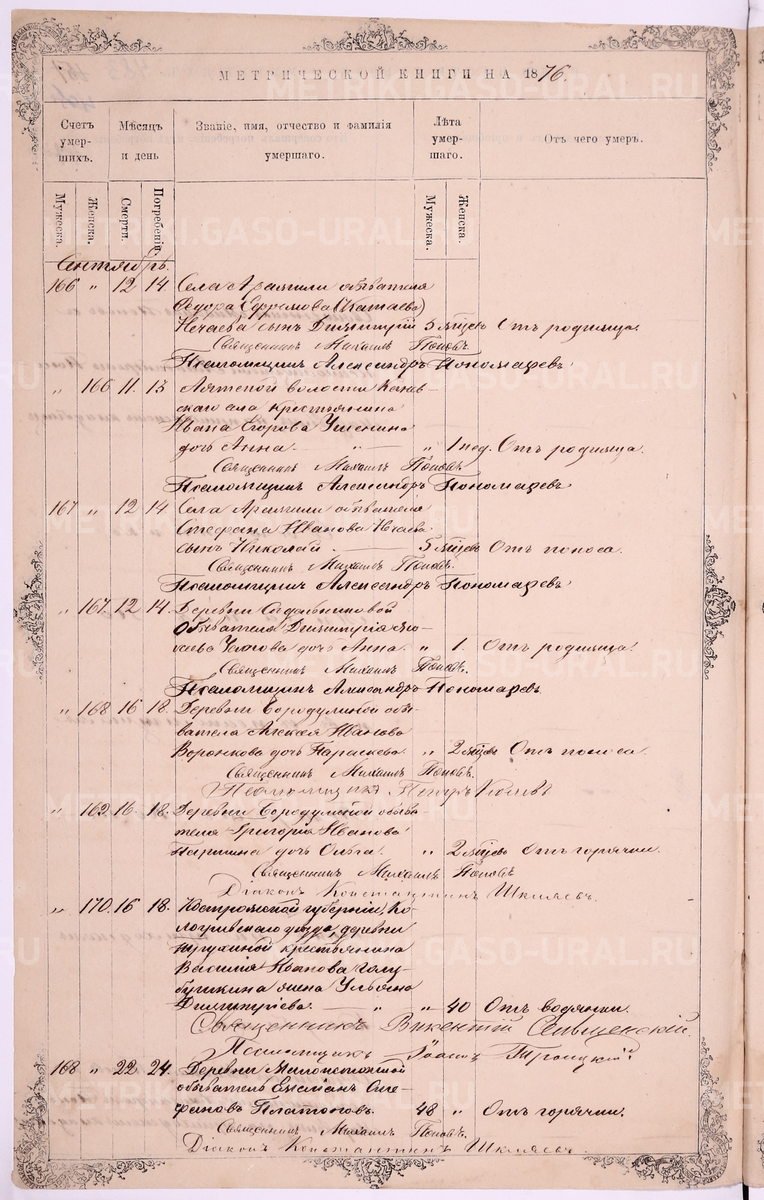 МЕТРИЧЕСКОЙ КНИГИ НА 1876.
Счетъ умер-шихъ.
Мѣсяцъ и день
Званіе, имя, отчество и фамилія умершаго.
Лѣта умер-шаго.
Отъ чего умеръ.
Мужеска. Женска. Смерти. Погребенія. Мужеска. Женска.
Сентябрь.
166 " 12 14 Села Арамили обывателя
Ѳедора Ефремова (Катаева)
Нечаева сынъ Димитрій 5 мѣсец Отъ родимца.
Священникъ Михаилъ Поповъ.
Псаломщикъ Александръ Пономаревъ
" 166 11. 13 Аятской волости
скаго села крестьянина
Ивана Егорова
дочь Анна. " " 1 нед. Отъ родимца.
Священникъ Михаилъ Поповъ
Псаломщикъ Александръ Пономаревъ
167 " 12 14 Села Арамили обывателя
Стефана Иванова Нечаева
сынъ Николай 5 мѣсец Отъ поноса.
Священникъ Михаилъ Поповъ.
Псаломщикъ Александръ Пономаревъ
" 167. 12 14. Деревни
обывателя Димитрія
дочь Анна. " 1. Отъ родимца.
Священникъ Михаилъ Поповъ.
Псаломщикъ Александръ Пономаревъ.
" 168 16 18. Деревни Бородулиной обы-
вателя Алексея Иванова
Воронкова дочь Параскева. " 2 мѣсец Отъ поноса.
Священникъ Михаилъ Поповъ.
Псаломщикъ Петръ
" 169. 16 18. Деревни Бородулиной обыва-
теля Григорія Иванова
Паршина дочь Ольга. " 2 мѣсец Отъ горячки.
Священникъ Михаилъ Поповъ
Діаконъ Константинъ Шкляевъ.
" 170. 16 18. Костромской губерніи, Ко-
логривскаго уѣзда, деревни
крестьянина
Василія Иванова Голу-
бушкина жена Ульяна
Димитріева. " " 40 Отъ водянки.
Священникъ Викентій
Псаломщикъ Іоаннъ Троицкій
168 " 22 24. Деревни
обыватель Сте-
фановъ Платоновъ. 48 " Отъ горячки.
Священникъ Михаилъ Поповъ.
Діаконъ Константинъ Шкляевъ.
METRIKI.GASO-URAL.RU